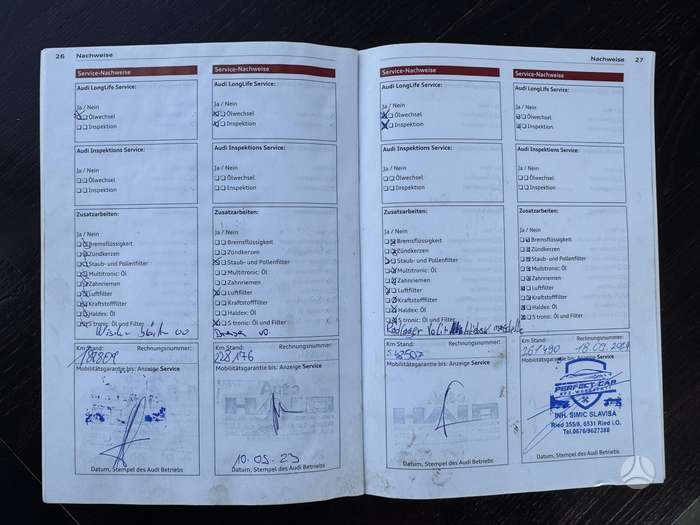 26 Nachweise
Service-Nachweise
Audi LongLife Service:
Ja / Nein
Ölwechsel
Inspektion
Audi Inspektions Service:
Ja / Nein
Ölwechsel
Inspektion
Zusatzarbeiten:
Ja / Nein
Bremsflüssigkeit
Zündkerzen
Staub- und Pollenfilter
Multitronic: Öl
Zahnriemen
Luftfilter
Kraftstofffilter
Haldex: Öl
S tronic: Öl und Filter
Km Stand: Rechnungsnummer:
Mobilitätsgarantie bis: Anzeige Service
Datum, Stempel des Audi Betriebs
Service-Nachweise
Audi LongLife Service:
Ja / Nein
Ölwechsel
Inspektion
Audi Inspektions Service:
Ja / Nein
Ölwechsel
Inspektion
Zusatzarbeiten:
Ja / Nein
Bremsflüssigkeit
Zündkerzen
Staub- und Pollenfilter
Multitronic: Öl
Zahnriemen
Luftfilter
Kraftstofffilter
Haldex: Öl
S tronic: Öl und Filter
Km Stand: Rechnungsnummer:
228176
Mobilitätsgarantie bis: Anzeige Service
10.05.23
Datum, Stempel des Audi Betriebs
Nachweise 27
Service-Nachweise
Audi LongLife Service:
Ja / Nein
Ölwechsel
Inspektion
Audi Inspektions Service:
Ja / Nein
Ölwechsel
Inspektion
Zusatzarbeiten:
Ja / Nein
Bremsflüssigkeit
Zündkerzen
Staub- und Pollenfilter
Multitronic: Öl
Zahnriemen
Luftfilter
Kraftstofffilter
Haldex: Öl
S tronic: Öl und Filter
Km Stand: Rechnungsnummer:
Mobilitätsgarantie bis: Anzeige Service
Datum, Stempel des Audi Betriebs
Service-Nachweise
Audi LongLife Service:
Ja / Nein
Ölwechsel
Inspektion
Audi Inspektions Service:
Ja / Nein
Ölwechsel
Inspektion
Zusatzarbeiten:
Ja / Nein
Bremsflüssigkeit
Zündkerzen
Staub- und Pollenfilter
Multitronic: Öl
Zahnriemen
Luftfilter
Kraftstofffilter
Haldex: Öl
S tronic: Öl und Filter
Km Stand: Rechnungsnummer:
261490
Mobilitätsgarantie bis: Anzeige Service
PERFECT CAR
INH. SIMIC SLAVISA
Ried 355/8, 6531 Ried i.O.
Tel.0676/9627388
Datum, Stempel des Audi Betriebs